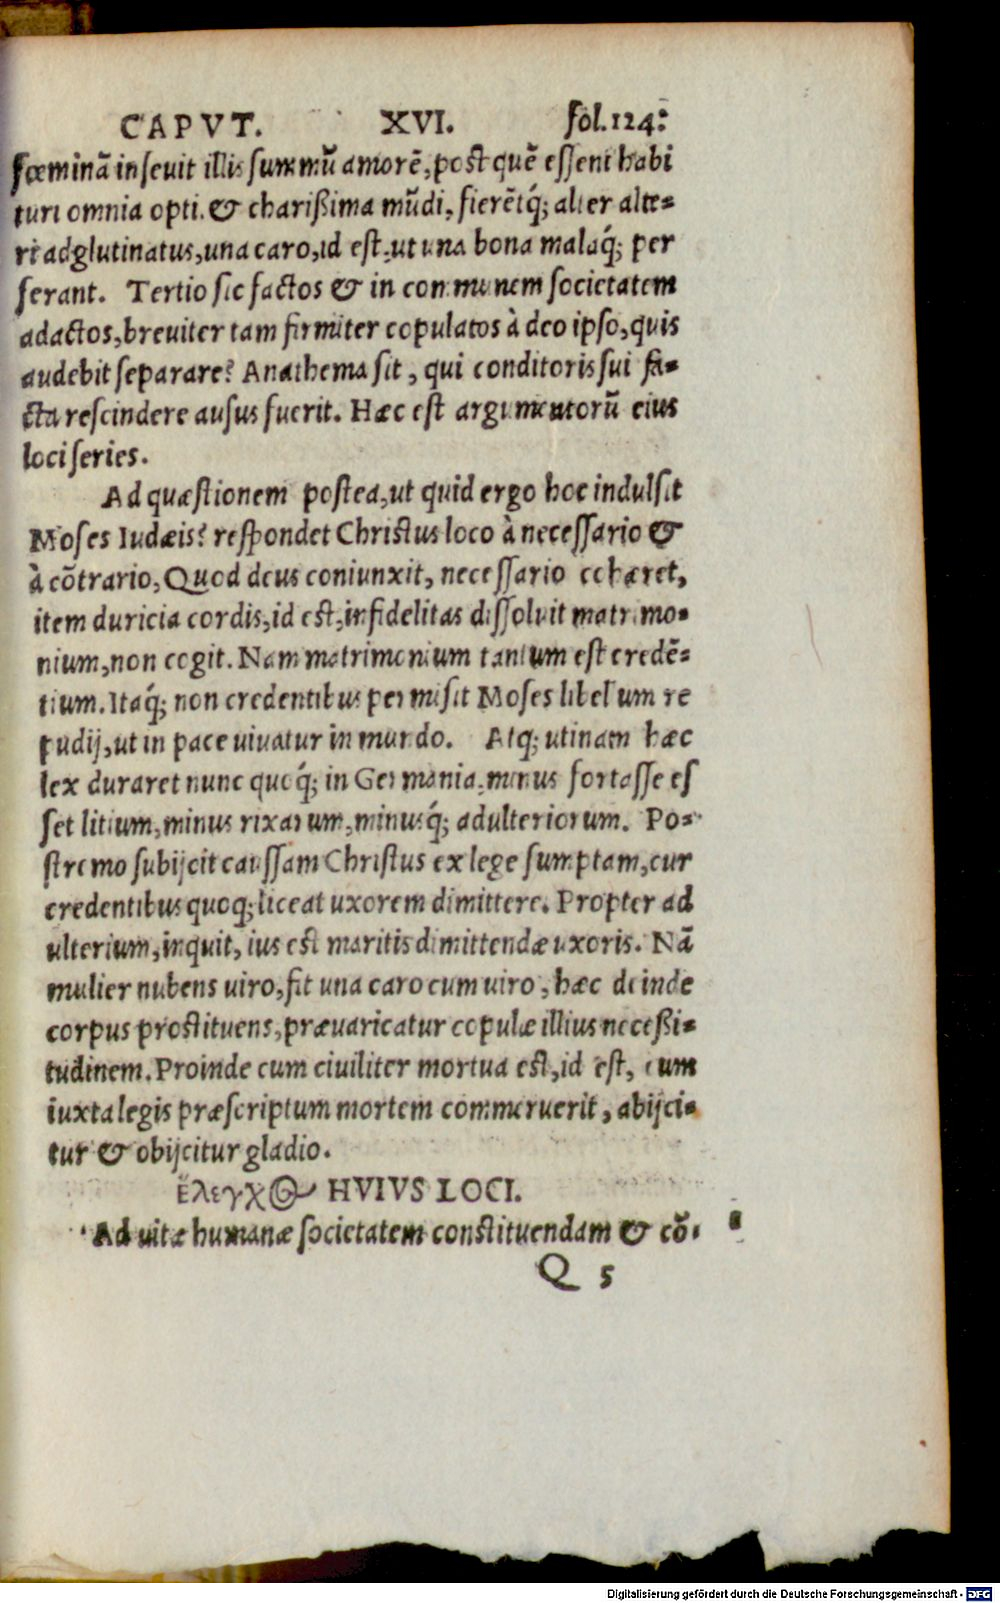 CAPVT. XVI. fol.124.
fœminā inseuit illis summū amorē, post quē essent habi
turi omnia opti. & charißima mūdi, fierētq́; alter alte-
ri adglutinatus, una caro, id est, ut una bona malaq́; per
ferant. Tertio sic factos & in communem societatem
adactos, breuiter tam firmiter copulatos à deo ipso, quis
audebit separare? Anathema sit, qui conditoris sui fa-
cta rescindere ausus fuerit. Hæc est argumentorū eius
loci series.
Ad quæstionem postea, ut quid ergo hoc indulsit
Moses Iudæis? respondet Christus loco à necessario &
à cōtrario, Quod deus coniunxit, necessario cohæret,
item duricia cordis, id est, infidelitas dissoluit matrimo-
nium, non cogit. Nam matrimonium tantum est credē-
tium. Itaq́; non credentibus permisit Moses libellum re
pudij, ut in pace uiuatur in mundo. Atq; utinam hæc
lex duraret nunc quoq́; in Germania, minus fortasse es
set litium, minus rixarum, minusq́; adulteriorum. Po-
stremo subijcit caussam Christus ex lege sumptam, cur
credentibus quoq; liceat uxorem dimittere. Propter ad
ulterium, inquit, ius est maritis dimittendæ uxoris. Nā
mulier nubens uiro, fit una caro cum uiro, hæc deinde
corpus prostituens, præuaricatur copulæ illius neceßi-
tudinem. Proinde cum ciuiliter mortua est, id est, cum
iuxta legis præscriptum mortem commeruerit, abijci-
tur & obijcitur gladio.
ἔλεγχος HVIVS LOCI.
Ad uitæ humanæ societatem constituendam & cō-
Q 5
Digitalisierung gefördert durch die Deutsche Forschungsgemeinschaft - DFG